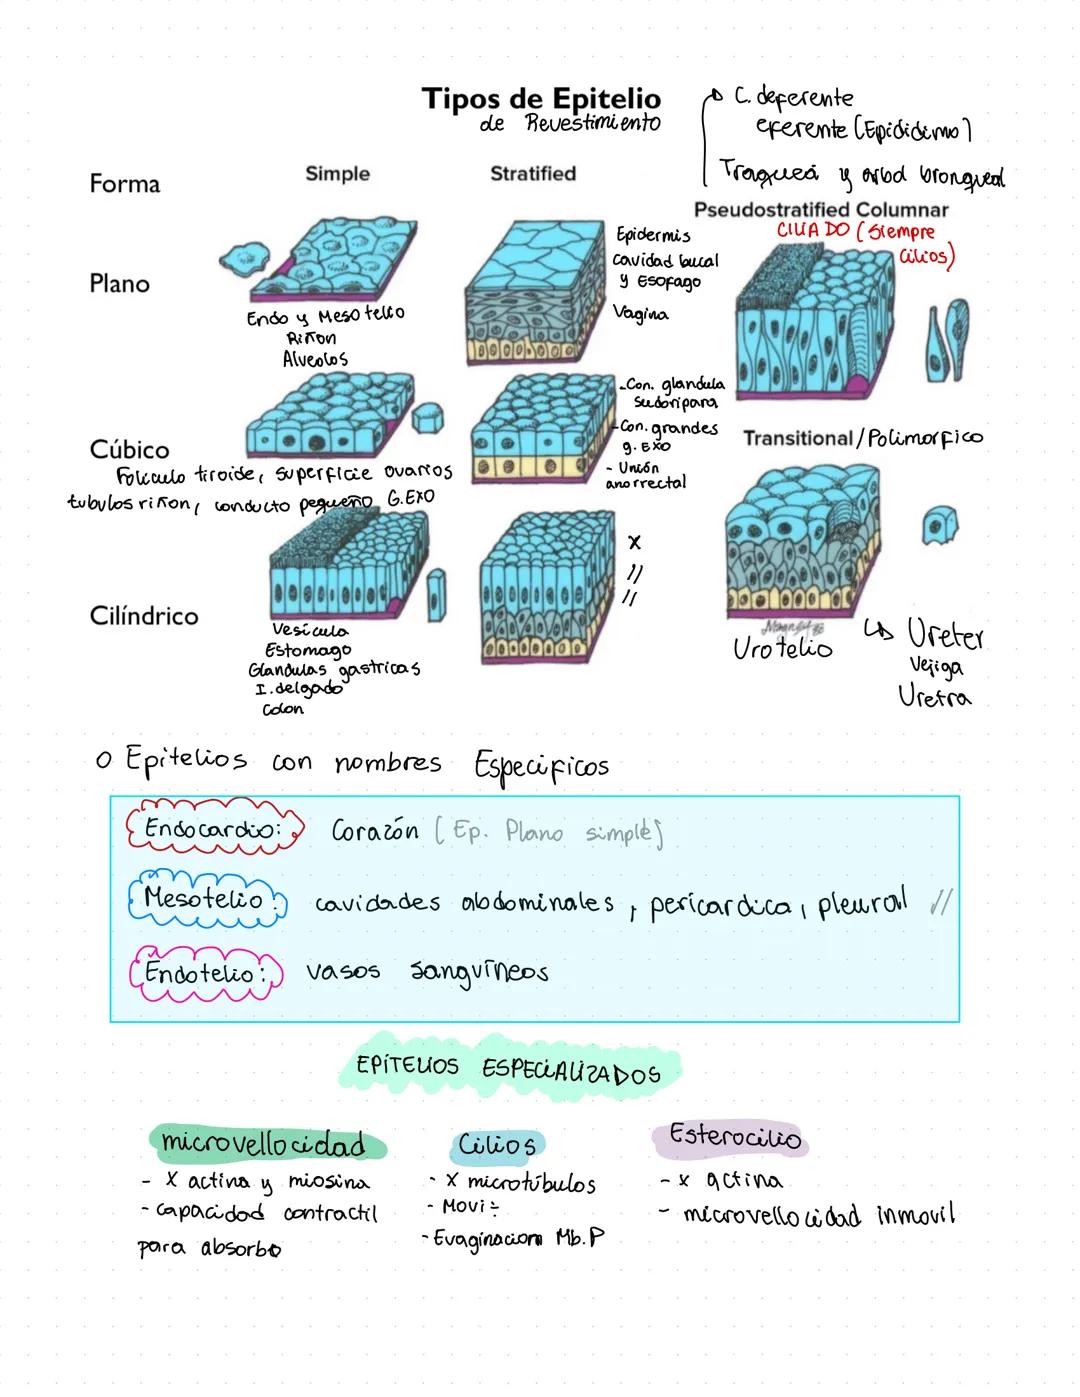 Tipos de Epitelio
de Revestimiento
C. deferente
eferente (Epididimo)
Traquea y arbol bronqueal
Forma
Simple
Stratified
Pseudostratified Columnar
CILIADO (Siempre
cilios)
Plano
Endo y Mesotelio
Riñon
Alveolos
Epidermis
cavidad bucal
y Esofago
Vagina
Cúbico
Foliculo tiroide, superficie ovarios
tubulos riñon, conducto pequeño G.EXO
-Con. glandula
sudoripara
-Con. grandes
g. Exo
- Unión
anorrectal
Transitional/Polimorfico
Cilíndrico
Vesícula
Estomago
Glandulas gastricas
I. delgado
Colon
X
//
//
Urotelio
Ureter
Vejiga
Uretra
o Epitelios con nombres Especificos
Endocardio: Corazón (Ep. Plano simple)
Mesotelio: cavidades abdominales, pericardica, pleural //
Endotelio: vasos sanguíneos
EPÍTELIOS ESPECIALIZADOS
microvellocidad
- X actina y miosina
- capacidad contractil
para absorbo
Cilios
- X microtúbulos
- Movi÷
- Evaginacion Mb.P
Esterocilio
- x actina
- microvellocidad inmovil